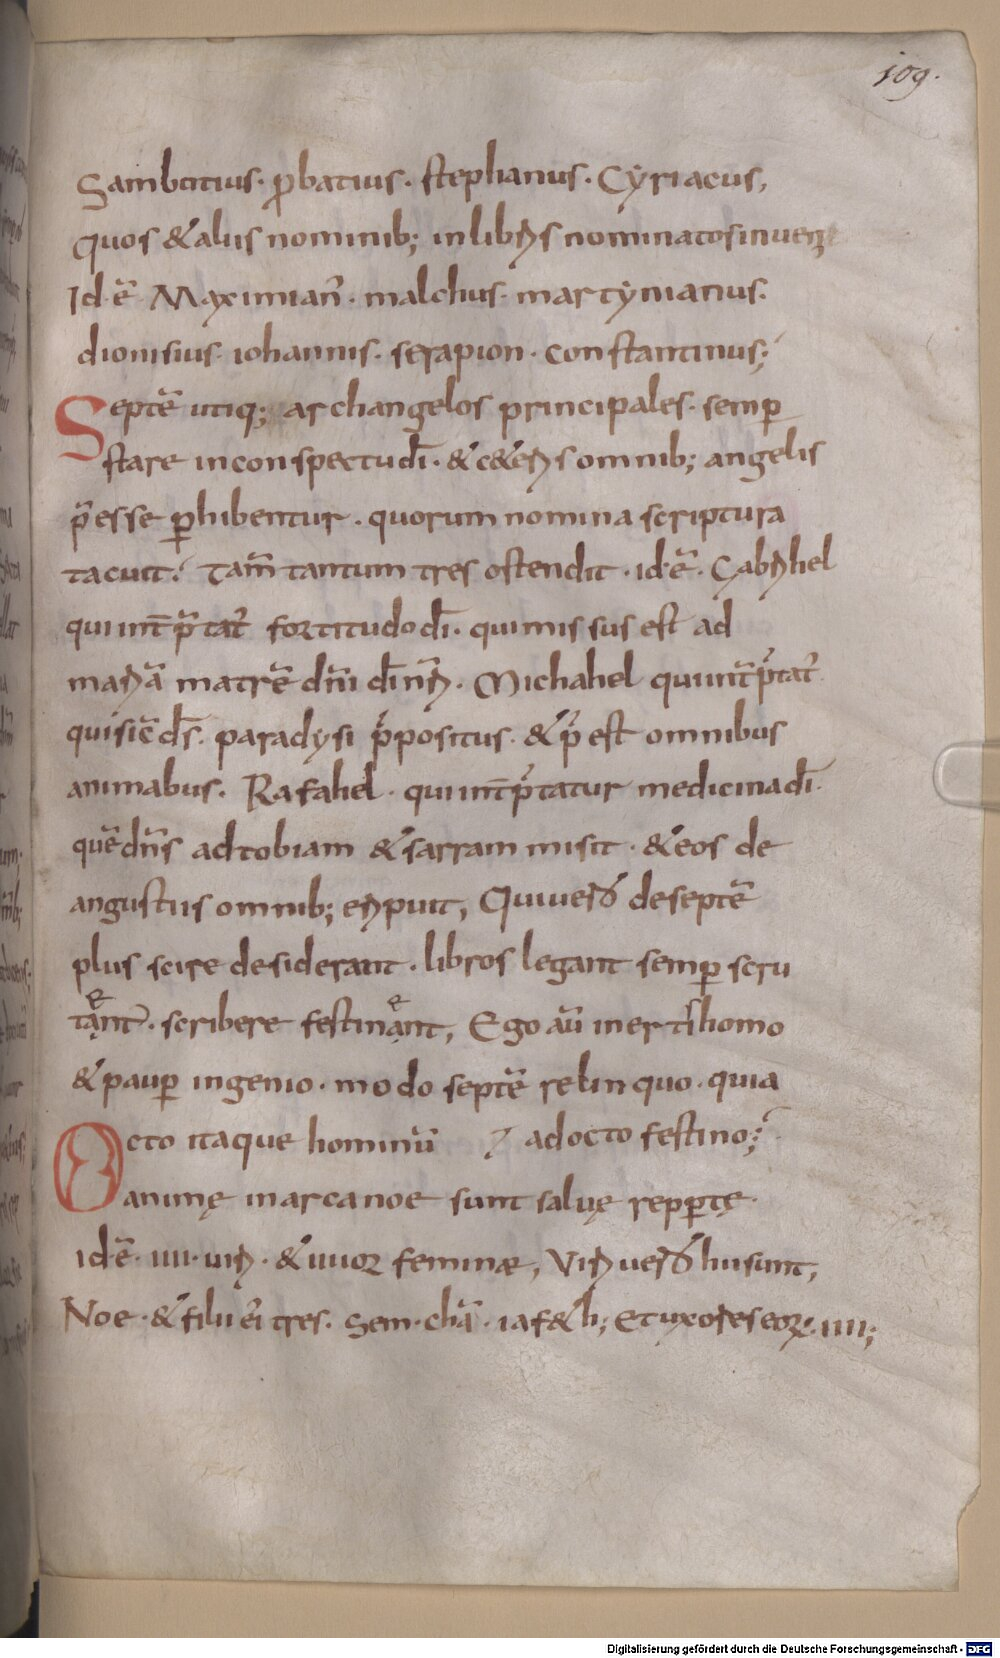 109.
Sambutius· ꝓbatius· stephanus· Cyriacus,
Quos &aliis nominib; inlibris nominatosinueni
Id·ē· Maximian̄· malchus· martynianus·
dionisius· iohannis· serapion· constantinus;
Septē utiq; archangelos principales· semꝑ
stare inconspectudī· &c&eris omnib; angelis
p̄esse ꝑhibentur· quorum nomina scriptura
tacuit; Tam̄ tantum tres ostendit· id·ē· Gabrihel
quiint̄p̄tat̄ fortitudodī· quimissus est ad
mariā matrē dn̄i dīnr̄i· Michahel quiint̄p̄tat̄
quisic̄ds̄· paradysi p̄positus· &p̄est omnibus
animabus· Rafahel· quiint̄p̄tatur medicinadī·
quēdn̄s adtobiam &sarram misit· &eos de
angustiis omnib; eripuit, Quiuero deseptē
plus scire desiderant· libros legant semꝑ scru
tent̄· scribere festinent, Ego aū inerti homo
&pauꝑ ingenio· modo septē relinquo· quia
Octo itaque hominū ⁊ adocto festino;
animę inarcanoe sunt saluę repꝑtę·
id·ē· iiii· uiri· &iiiior feminæ, Viri uero hiisunt,
Noe· &filii ei tres· Sem· chā· iaf&h; Et uxores eoꝝ· iiii;
Digitalisierung gefördert durch die Deutsche Forschungsgemeinschaft - DFG